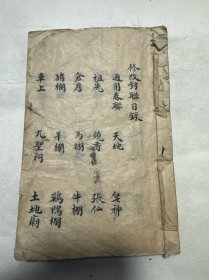 修改對聯目錄
通用春聯 天地 神
祖先 燒香 張仙
倉房 馬棚 牛棚
猪欄 羊欄 鷄鴨欄
車上 九聖祠 土地廟